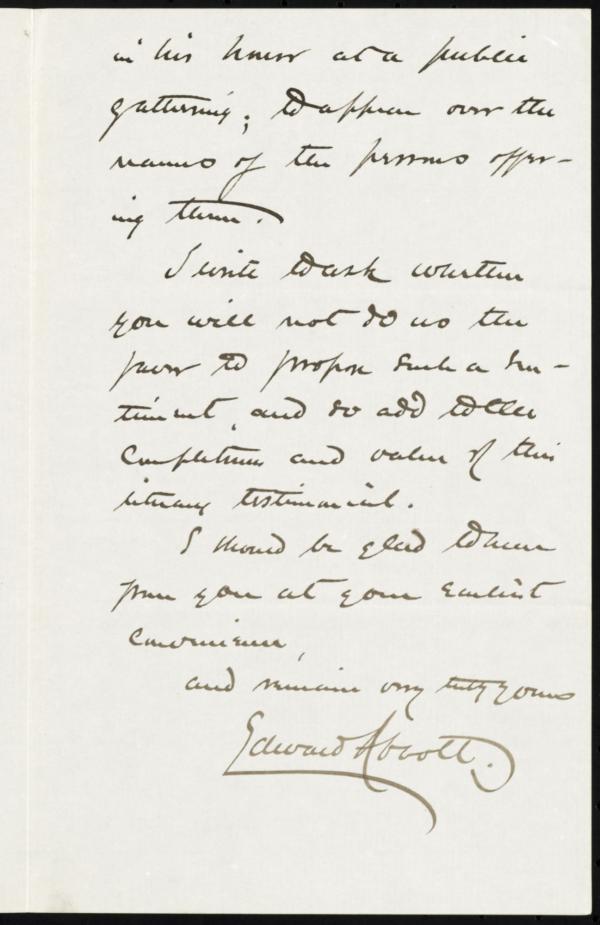 in his honor at a public
gathering; to appear over the
names of the persons offer-
ing them.
I write to ask whether
you will not do us the
favor to propose such a sen-
timent, and so add to the
completeness and value of this
literary testimonial.
I should be glad to hear
from you at your earliest
convenience,
and remain very truly yours
Edward Abbott.